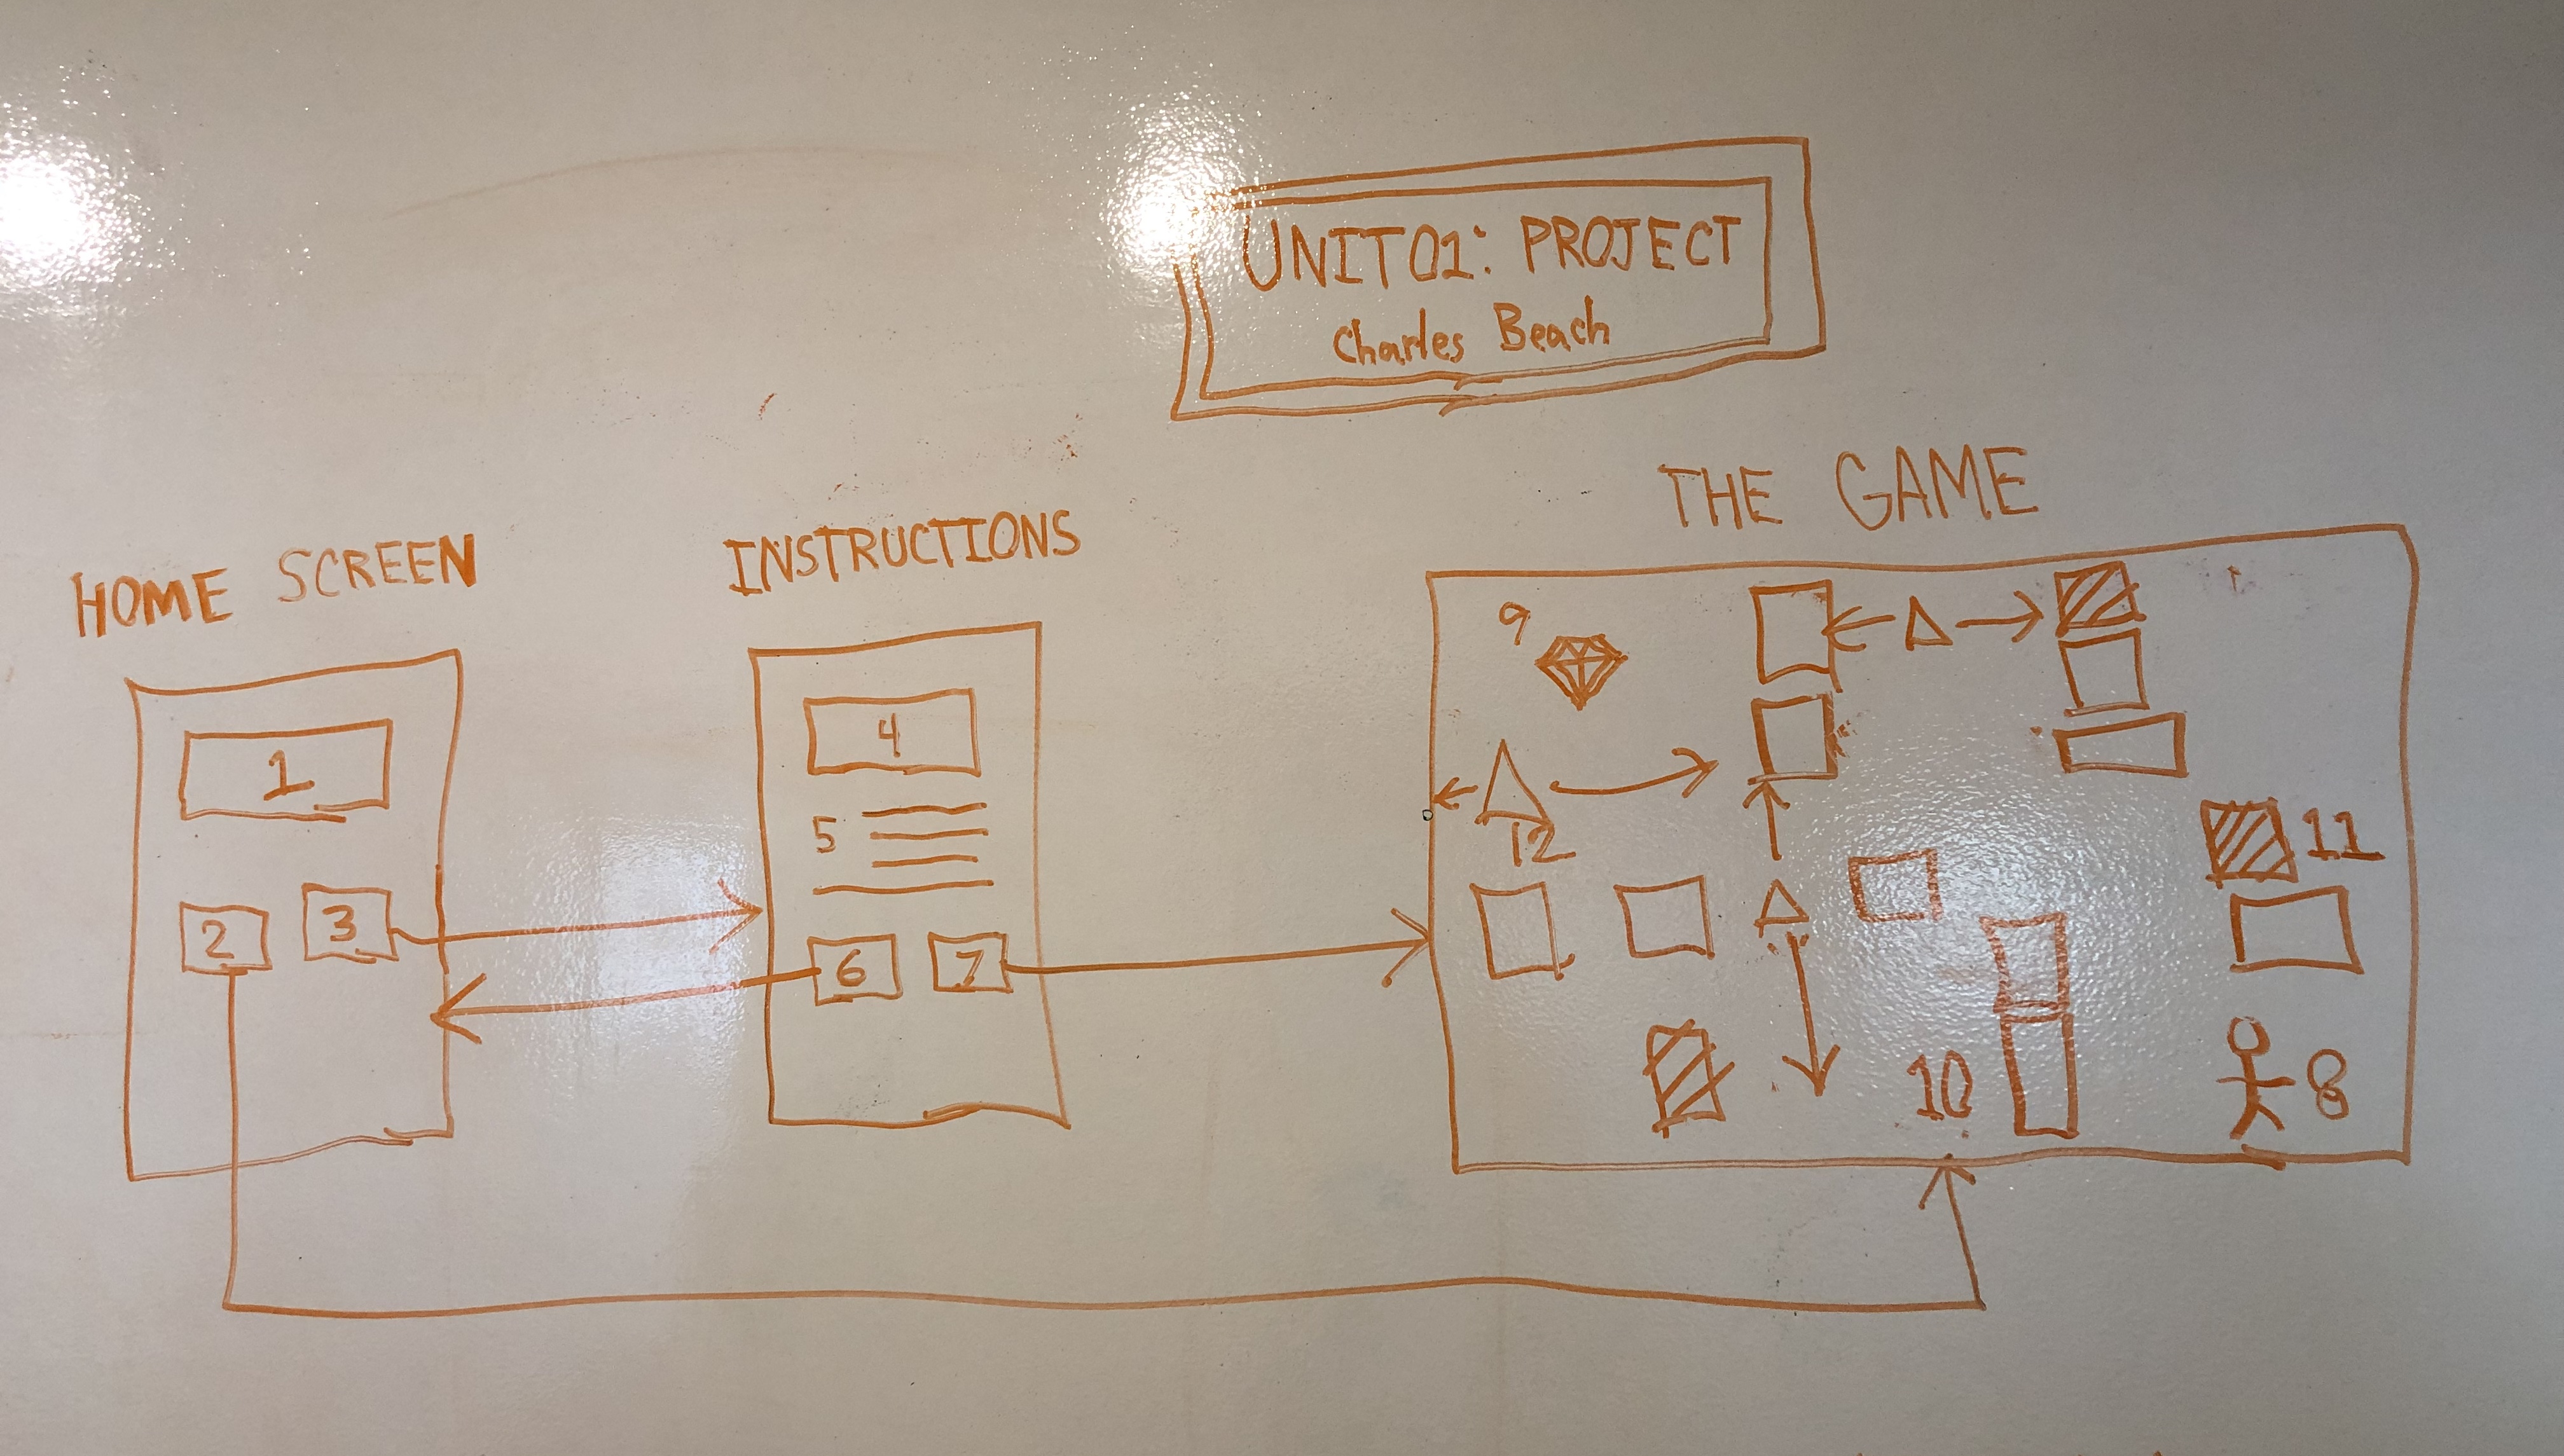 UNIT01: PROJECT
Charles Beach
HOME SCREEN
1
2
3
INSTRUCTIONS
4
5
6
7
THE GAME
9
12
11
10
8